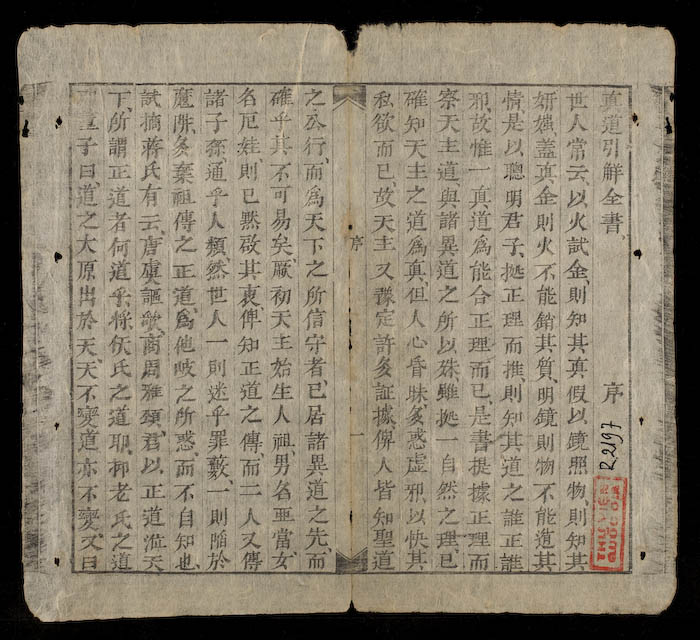 真道引解全書 序
世人常云、以火試金、則知其真假、以鏡照物、則知其
妍媸、蓋真金則火不能銷其質、明鏡則物不能遁其
情、是以聰明君子、挺正理而推、則知其道之誰正誰
邪、故惟一真道為能合正理而已、是書挺據正理、而
察天主道、與諸異道之所以殊、雖挺一自然之理、已
確知天主之道為真、但人心昏昧、多惑虛邪、以快其
私欲而已、故天主又豫定許多証據、俾人皆知聖道
序
一
之於行、而為天下之所信守者、已居諸異道之先、而
確乎其不可易矣、厥初天主始生人祖、男名亜當、女
名厄娃、則已黙啟其衷、俾知正道之傳、而二人又傳
諸子孫、通乎人類、然世人一則迷乎罪藪、一則陷於
魔阱、多棄祖傳之正道、為他岐之所惑、而不自知也、
試摘蒋氏有云、唐虞謳歌、商周雅頌、君以正道涖天
下、所謂正道者何道乎、將伏氏之道耶、抑老氏之道
子曰、道之大原出於天、天不變、道亦不變、又曰
R.2197
THƯ VIỆN
QUỐC GIA